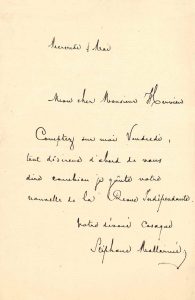 Mercredi
Mon cher Monsieur
Comptez sur moi Vendredi,
tout désireux d'abord de vous
dire combien je goûte votre
nouvelle de la Revue Indépendante.
Votre dévoué
Stéphane Mallarmé